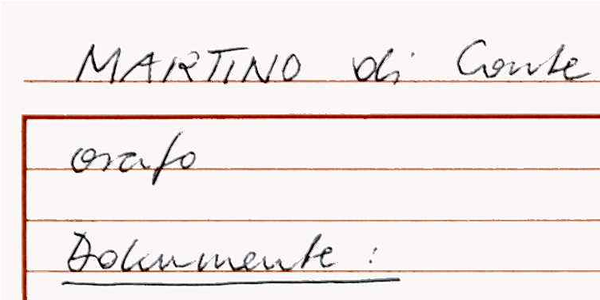 MARTINO di Conte
orafo
Dokumente :